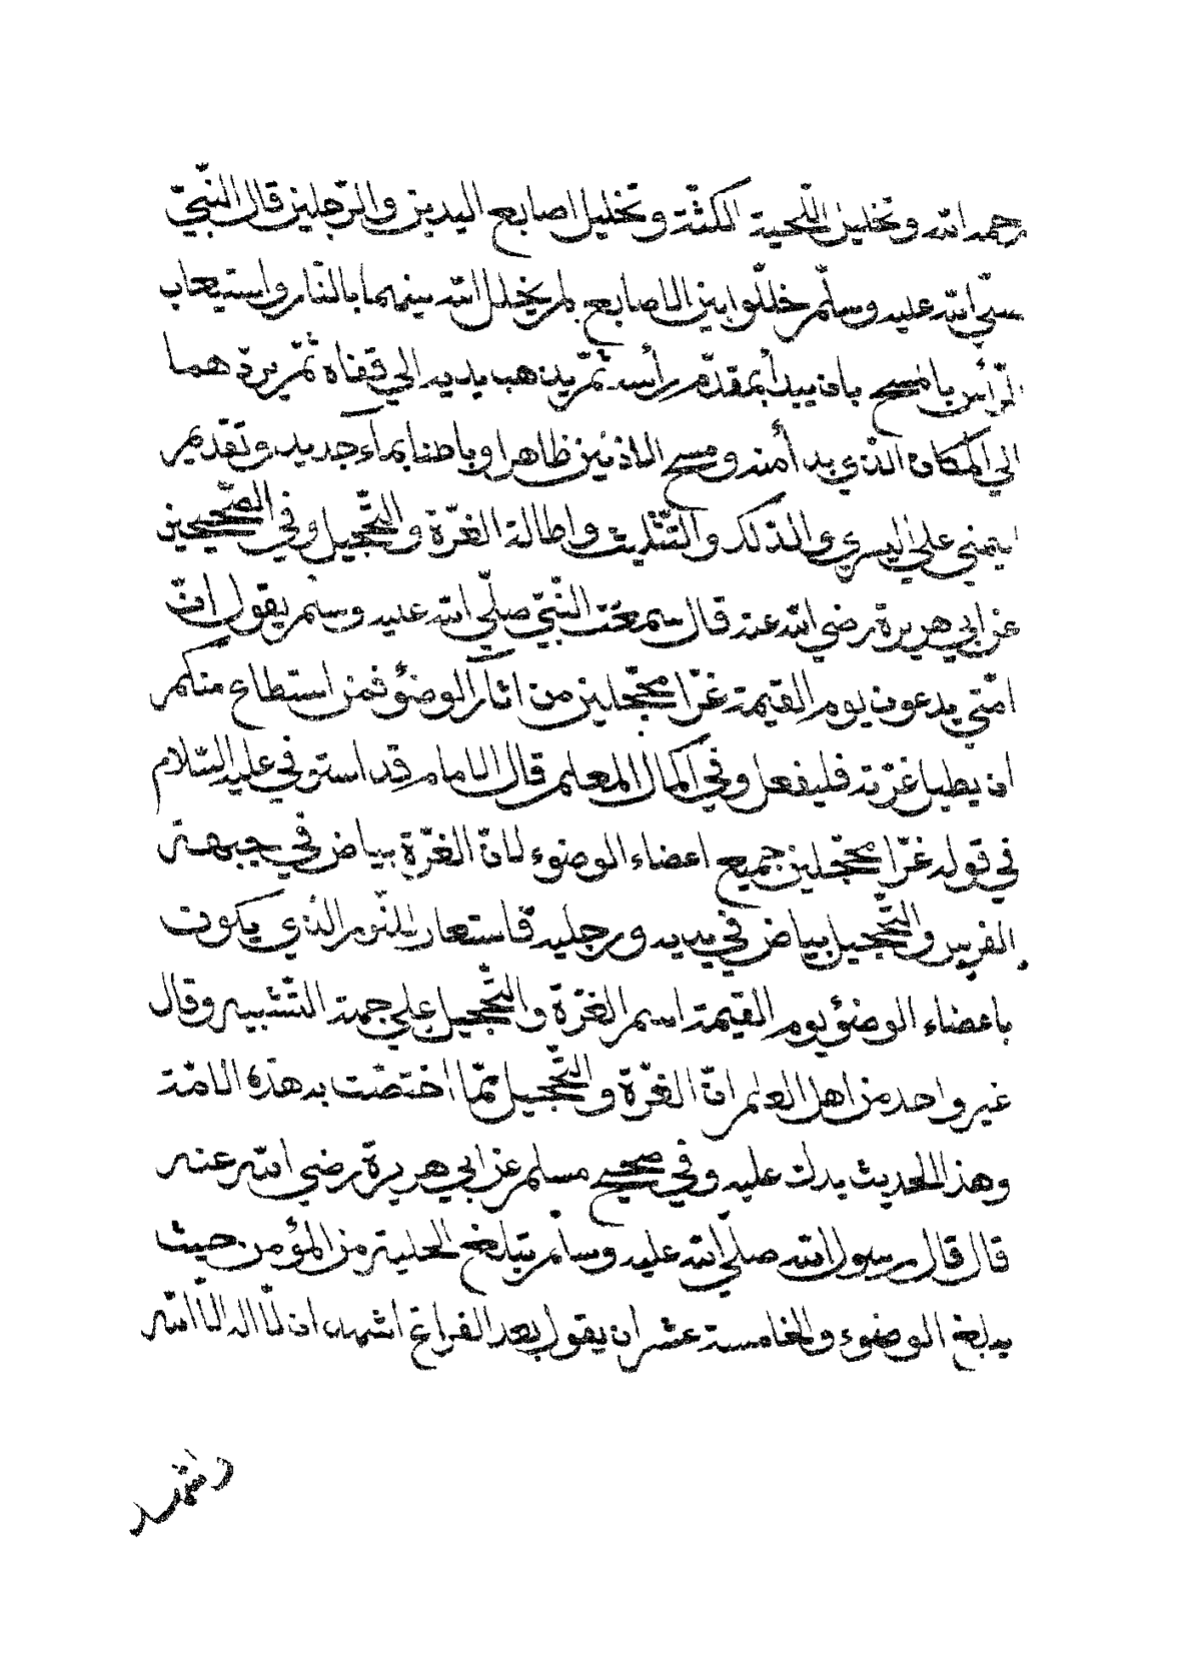 رحمه الله وتخليل اللّحية الكثّة وتخليل اصابع اليدين والرّجلين قال النّبيّ
صلّي الله عليه وسلّم خلّلوا بين الاصابع لم يخلل الله بينهما بالنّار واستيعاب
الرّأس بالمسح بان يبدأ بمقدّم رأسه ثمّ يذهب بيديه الي قفاه ثمّ يردّ هما
الي المكان الذي بدأ منه ومسح الاذنين ظاهرا وباطنا بماء جديد وتقديم
اليمني علي اليسري والدلك والتّثليث واطالة الغرّة والتّحجيل وفي الصّحيحين
عن ابي هريرة رضي الله عنه قال سمعت النّبيّ صلّي الله عليه وسلم يقول انّ
امّتي يدعون يوم القيمة غرّا محجّلين من اثار الوضوء فمن استطاع منكم
ان يطيل غرّته فليفعل وفي اكمال المعلم قال الامام قد استوفي عليه السّلام
في قوله غرّا محجّلين جميع اعضاء الوضوء لانّ الغرّة بياض في جبهة
الفرس والتّحجيل بياض في يديه ورجليه فاستعار للنّور الذي يكون
باعضاء الوضوء يوم القيمة اسم الغرّة والتّحجيل علي جهة التّشبيه وقال
غير واحد من اهل العلم انّ الغرّة والتّحجيل ممّا اختصّت به هذه الامّة
وهذا الحديث يدل عليه وفي صحيح مسلم عن ابي هريرة رضي الله عنه
قال قال رسول الله صلّي الله عليه وسلّم تبلغ الحلية من المؤمن حيث
يبلغ الوضوء والخامسة عشر ان يقول بعد الفراغ اشهد ان لّا اله الّا الله